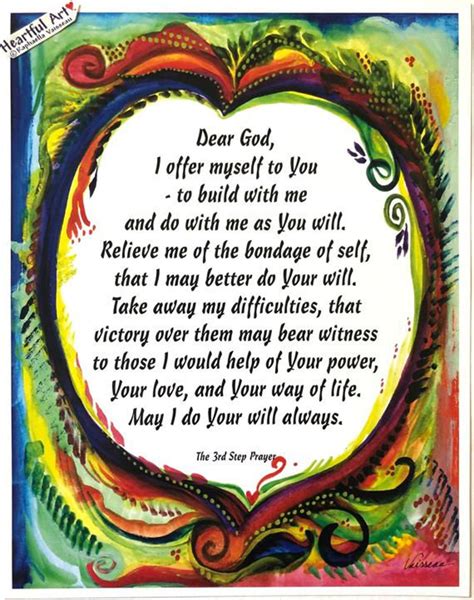 Heartful Art
© Raphaella Vaisseau
Dear God,
I offer myself to You
- to build with me
and do with me as You will.
Relieve me of the bondage of self,
that I may better do Your will.
Take away my difficulties, that
victory over them may bear witness
to those I would help of Your power,
Your love, and Your way of life.
May I do Your will always.
The 3rd Step Prayer
Vaisseau